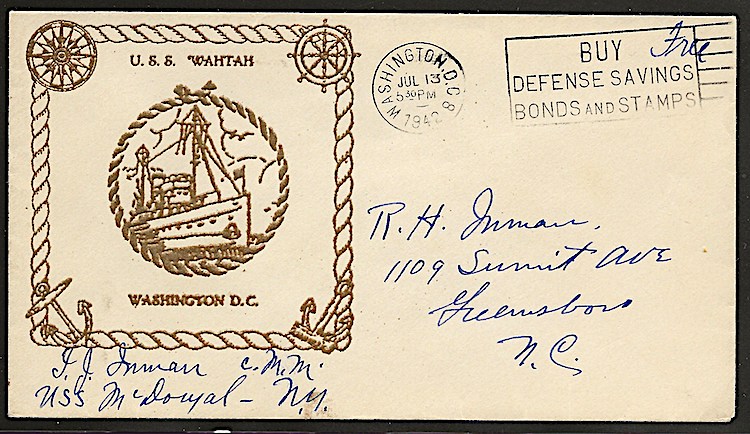 U. S. S. WAHTAH
WASHINGTON D.C.
WASHINGTON, D.C. 8
JUL 13
5 30 PM
1942
BUY
DEFENSE SAVINGS
BONDS AND STAMPS
Free
R. H. Inman,
1109 Summit Ave
Greensboro
N.C.
Inman C.M.M.
USS McDougal - N.Y.